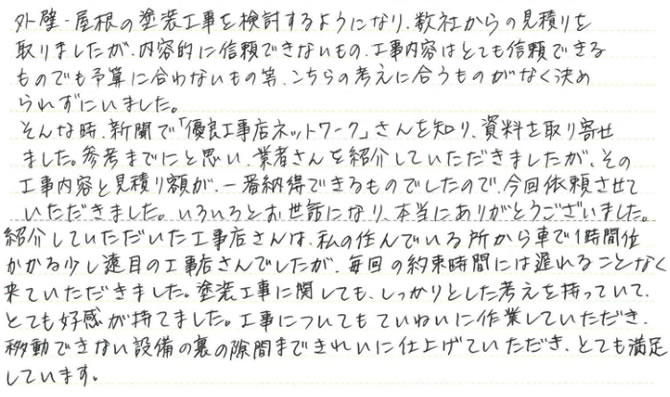 外壁・屋根の塗装工事を検討するようになり、数社からの見積りを
取りましたが、内容的に信頼できないもの、工事内容はとても信頼できる
ものでも予算に合わないもの等、こちらの考えに合うものがなく決め
られずにいました。
そんな時、新聞で「優良工事店ネットワーク」さんを知り、資料を取り寄せ
ました。参考までにと思い、業者さんを紹介していただきましたが、その
工事内容と見積り額が、一番納得できるものでしたので、今回依頼させて
いただきました。いろいろとお世話になり、本当にありがとうございました。
紹介していただいた工事店さんは、私の住んでいる所から車で1時間位
かかる少し遠目の工事店さんでしたが、毎回の約束時間には遅れることなく
来ていただきました。塗装工事に関しても、しっかりとした考えを持っていて、
とても好感が持てました。工事についてもていねいに作業していただき、
移動できない設備の裏の隙間まできれいに仕上げていただき、とても満足
しています。